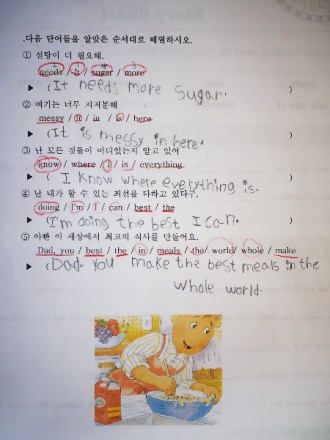 .다음 단어들을 알맞은 순서대로 배열하시오.
① 설탕이 더 필요해.
needs / it / sugar / more
▶ (It needs more sugar. )
② 여기는 너무 지저분해
messy / It / in / is / here
▶ (It is messy in here.
③ 난 모든 것들이 어디있는지 알고 있어
know / where / I / is / everything
▶ ( I know where everything is.
④ 난 내가 할 수 있는 최선을 다하고 있다구.
doing / I'm / I / can / best / the
▶ (I'm doing the best I can. )
⑤ 아빠 이 세상에서 최고의 식사를 만들어요.
Dad, you / best / the / in / meals / the/ world/ whole / make
▶ (Dad. you make the best meals in the
whole world.